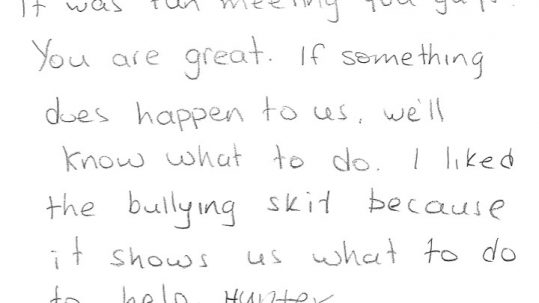 It was fun meeting you guys.
You are great. If something
does happen to us, we'll
know what to do. I liked
the bullying skit because
it shows us what to do
to help. Hunter